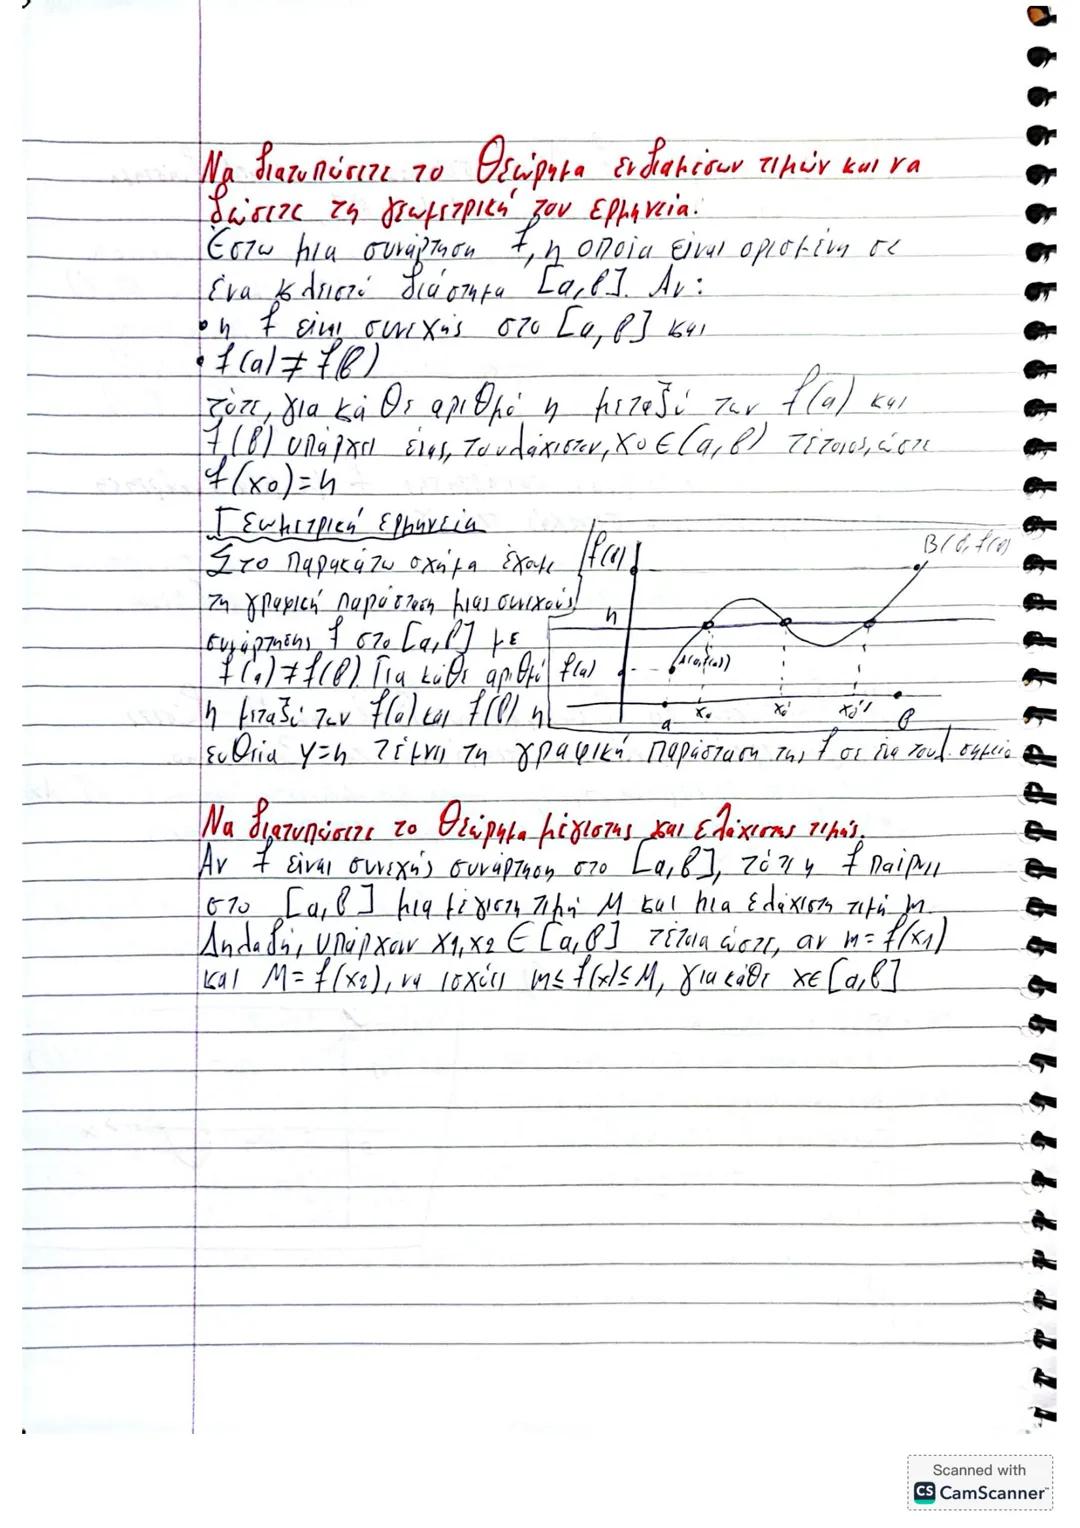 Να διατυπώσετε το Θεώρημα ενδιαμέσων τιμών και να
δώσετε τη γεωμετρική του ερμηνεία.
Έστω μια συνάρτηση f, η οποία είναι ορισμένη σε
ένα κλειστό διάστημα [α,β]. Αν:
• η f είναι συνεχής στο [α,β] και
• f(α) ≠ f(β)
τότε, για κάθε αριθμό η μεταξύ των f(α) και
f(β) υπάρχει ένας, τουλάχιστον, x0 ∈ (α,β) τέτοιος, ώστε
f(x0) = η
Γεωμετρική ερμηνεία
Στο παρακάτω σχήμα έχουμε
τη γραφική παράσταση μιας συνεχούς
συνάρτησης f στο [α,β] με
f(α) ≠ f(β). Για κάθε αριθμό
η μεταξύ των f(α) και f(β) η
ευθεία y=η τέμνει τη γραφική παράσταση της f σε ένα τουλ. σημείο
f(β)
B(β, f(β))
η
f(α)
A(α, f(α))
α
x0
x0'
x0''
β
Να διατυπώσετε το Θεώρημα μέγιστης και ελάχιστης τιμής.
Αν f είναι συνεχής συνάρτηση στο [α,β], τότε η f παίρνει
στο [α,β] μια μέγιστη τιμή M και μια ελάχιστη τιμή m.
Δηλαδή, υπάρχουν x1, x2 ∈ [α,β] τέτοια ώστε, αν m = f(x1)
και M = f(x2), να ισχύει m ≤ f(x) ≤ M, για κάθε x ∈ [α,β]
Scanned with
CS CamScanner